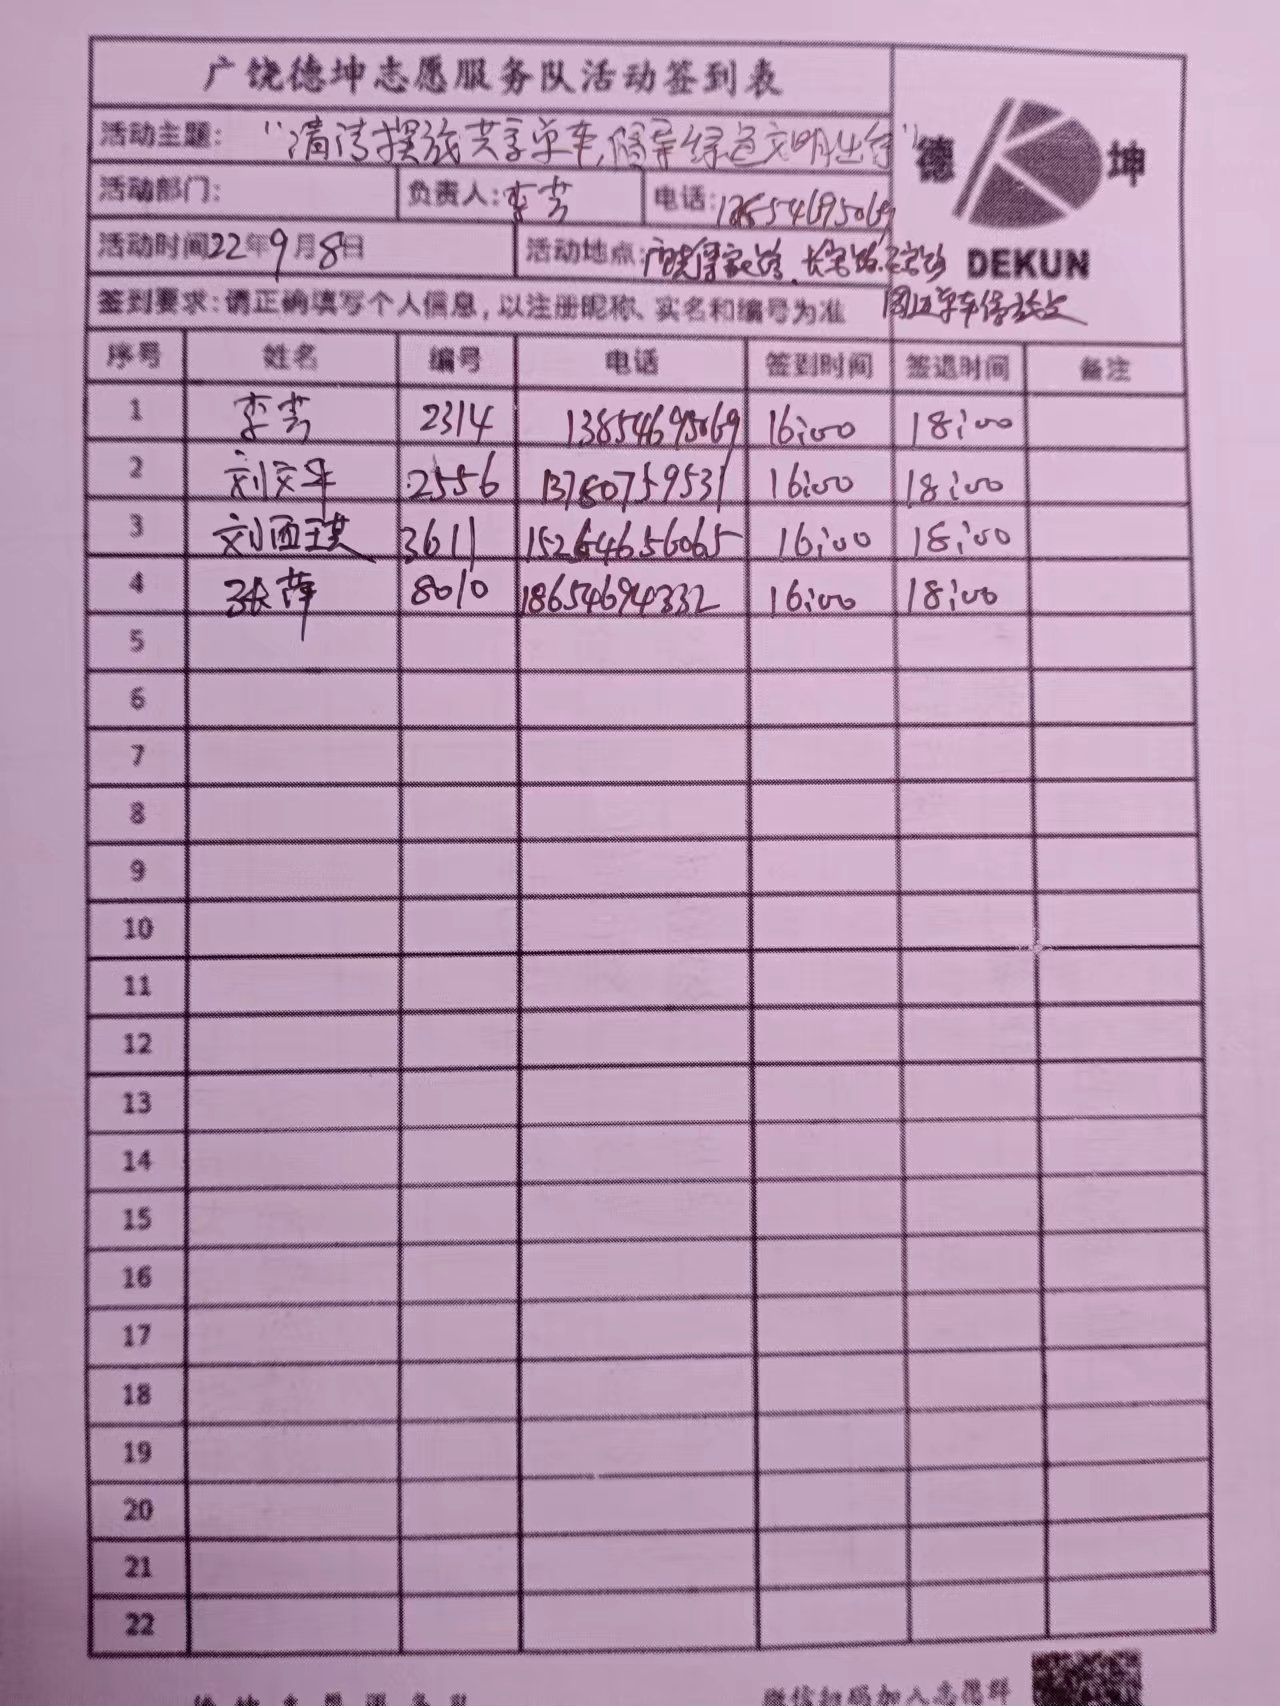 广饶德坤志愿服务队活动签到表
活动主题: "清洁摆放共享单车,倡导绿色文明出行"
德 坤
活动部门: 负责人:李芳 电话:13854695069
活动时间22年9月8日 活动地点:
DEKUN
周边单车停放处
签到要求:请正确填写个人信息,以注册昵称、实名和编号为准
序号 姓名 编号 电话 签到时间 签退时间 备注
1 李芳 2314 13854695069 16:00 18:00
2 刘文华 2556 13780759531 16:00 18:00
3 刘西琪 3611 15264656065 16:00 18:00
4 张萍 8010 18654694332 16:00 18:00
5
6
7
8
9
10
11
12
13
14
15
16
17
18
19
20
21
22
微信扫码加入志愿群